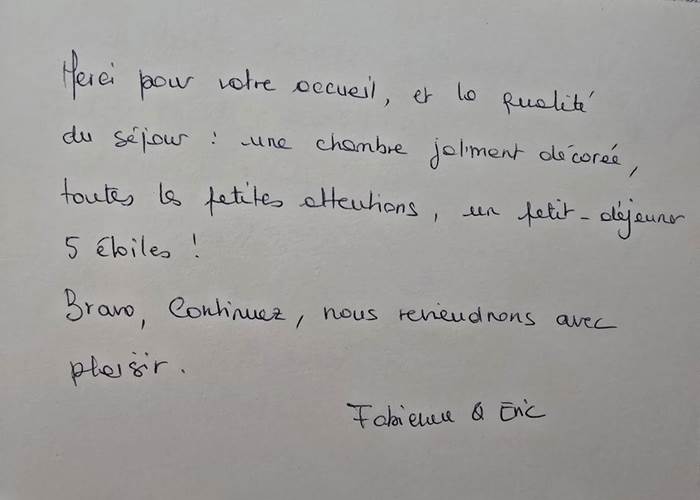 Merci pour votre accueil, et la qualité
du séjour : une chambre joliment décorée,
toutes les petites attentions, un petit-déjeuner
5 étoiles !
Bravo, Continuez, nous reviendrons avec
plaisir.
Fabienne & Eric